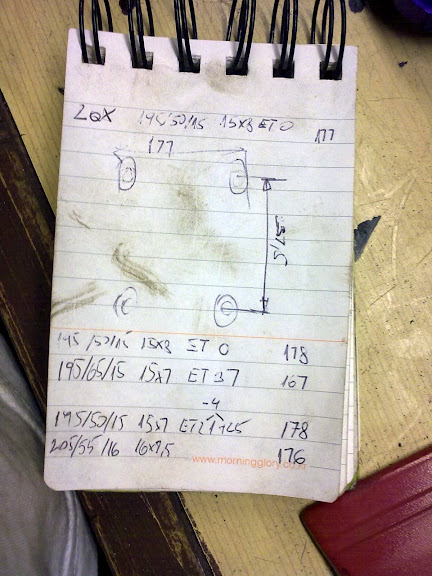 195/50/15 15X8 ET 0 177
177
57,5
195/50/15 15X8 ET 0 178
195/65/15 15X7 ET 37 167
-4
195/50/15 15X7 178
205/55/16 16X7,5 176
www.morningglory.co.kr